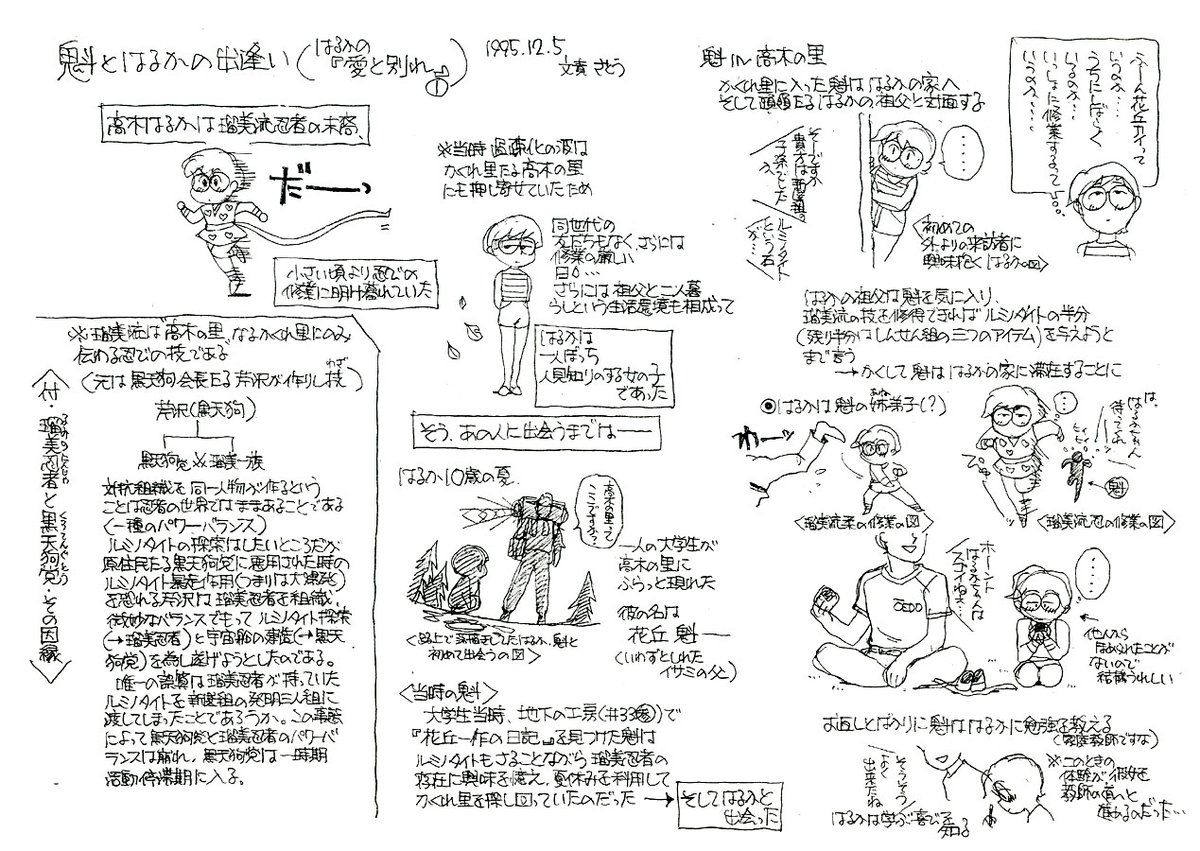 魁とはるかの出逢い(はるかの『愛と別れ』①)
1995.12.5
文責 さとう
高木はるかは瑠美流忍者の末裔、
だーっ
小さい頃より忍びの
修業に明け暮れていた
※瑠美流は"高木の里"なるかくれ里にのみ
伝わる忍びの技である
(元は黒天狗会長たる芹沢が作りし技)
わざ
〈付・瑠美忍者と黒天狗党・その因縁〉
るみのにんじゃ
くろてんぐとう
芹沢(黒天狗)
黒天狗党 ※ 瑠美一族
対抗組織を同一人物が作るという
ことは忍者の世界ではままあることである
(一種のパワーバランス)
ルミノタイトの探索はしたいところだが
原住民たる黒天狗党に悪用された時の
ルミノタイト暴走作用(つまりは大爆発)
を恐れる芹沢は瑠美忍者を組織、
微妙なバランスでもってルミノタイト探索
(→瑠美忍者)と宇宙船の建造(→黒天
狗党)を為し遂げようとしたのである。
唯一の誤算は瑠美忍者が持っていた
ルミノタイトを新撰組の発明三人組に
渡してしまったことであろうか。この事態
によって黒天狗党と瑠美忍者のパワーバ
ランスは崩れ、黒天狗党は一時期
活動停滞期に入る。
※当時過疎化の波は
かくれ里たる高木の里
にも押し寄せていたため
同世代の
友だちもなく、さらには
修業の厳しい
日々…
さらには祖父と二人暮
らしという生活環境も相成って
はるかは
一人ぼっち
人見知りのする女の子
であった
そう、あの人に出会うまでは――
はるか10歳の夏、
高木の里って
ここですか?
一人の大学生が
高木の里に
ふらっと現れた
彼の名は
花丘 魁―
(いわずとしれた
イサミの父)
魁と
初めて出会うの図〉
〈当時の魁〉
大学生当時、地下の工房(#33参)で
『花丘一作の日記』を見つけた魁は
ルミノタイトもさることながら瑠美忍者の
存在に興味を憶え、夏休みを利用して
かくれ里を探し回っていたのだった→
そしてはるかと
出会った
魁 in 高木の里
かくれ里に入った魁ははるかの家へ
そして頭領たるはるかの祖父と対面する
そーですか
貴方は新撰組の
子孫でした
か
ルミノタイト
という石
が…
……
初めての
外よりの来訪者に
興味抱くはるかの図〉
ふーん花丘カイって
いうのか…
うちにしばらく
いるのか…
いっしょに修業するって
いうのか……
はるかの祖父は魁を気に入り、
瑠美流の技を修得できればルミノタイトの半分
(残り半分はしんせん組の三つのアイテム)を与えようと
まで言う
→かくして魁ははるかの家に滞在することに
◉はるかは魁の姉弟子(?)
あね
かーッ
〈瑠美流柔の修業の図〉
…
は、
はるかちゃん
待ってくれ
ヒィヒィ
ぴゅー
魁
〈瑠美流忍の修業の図〉
ホーント
はるかちゃんは
スゴイねえ
OEDO
……
他人から
ほめられたことが
ないので
結構うれしい
お返しとばかりに魁ははるかに勉強を教える
(家庭教師ですな)
そうそう
よく
出来たね
はるかは学ぶ喜びを
知る
※このときの
体験が彼女を
教師の道へと
進めるのだった…